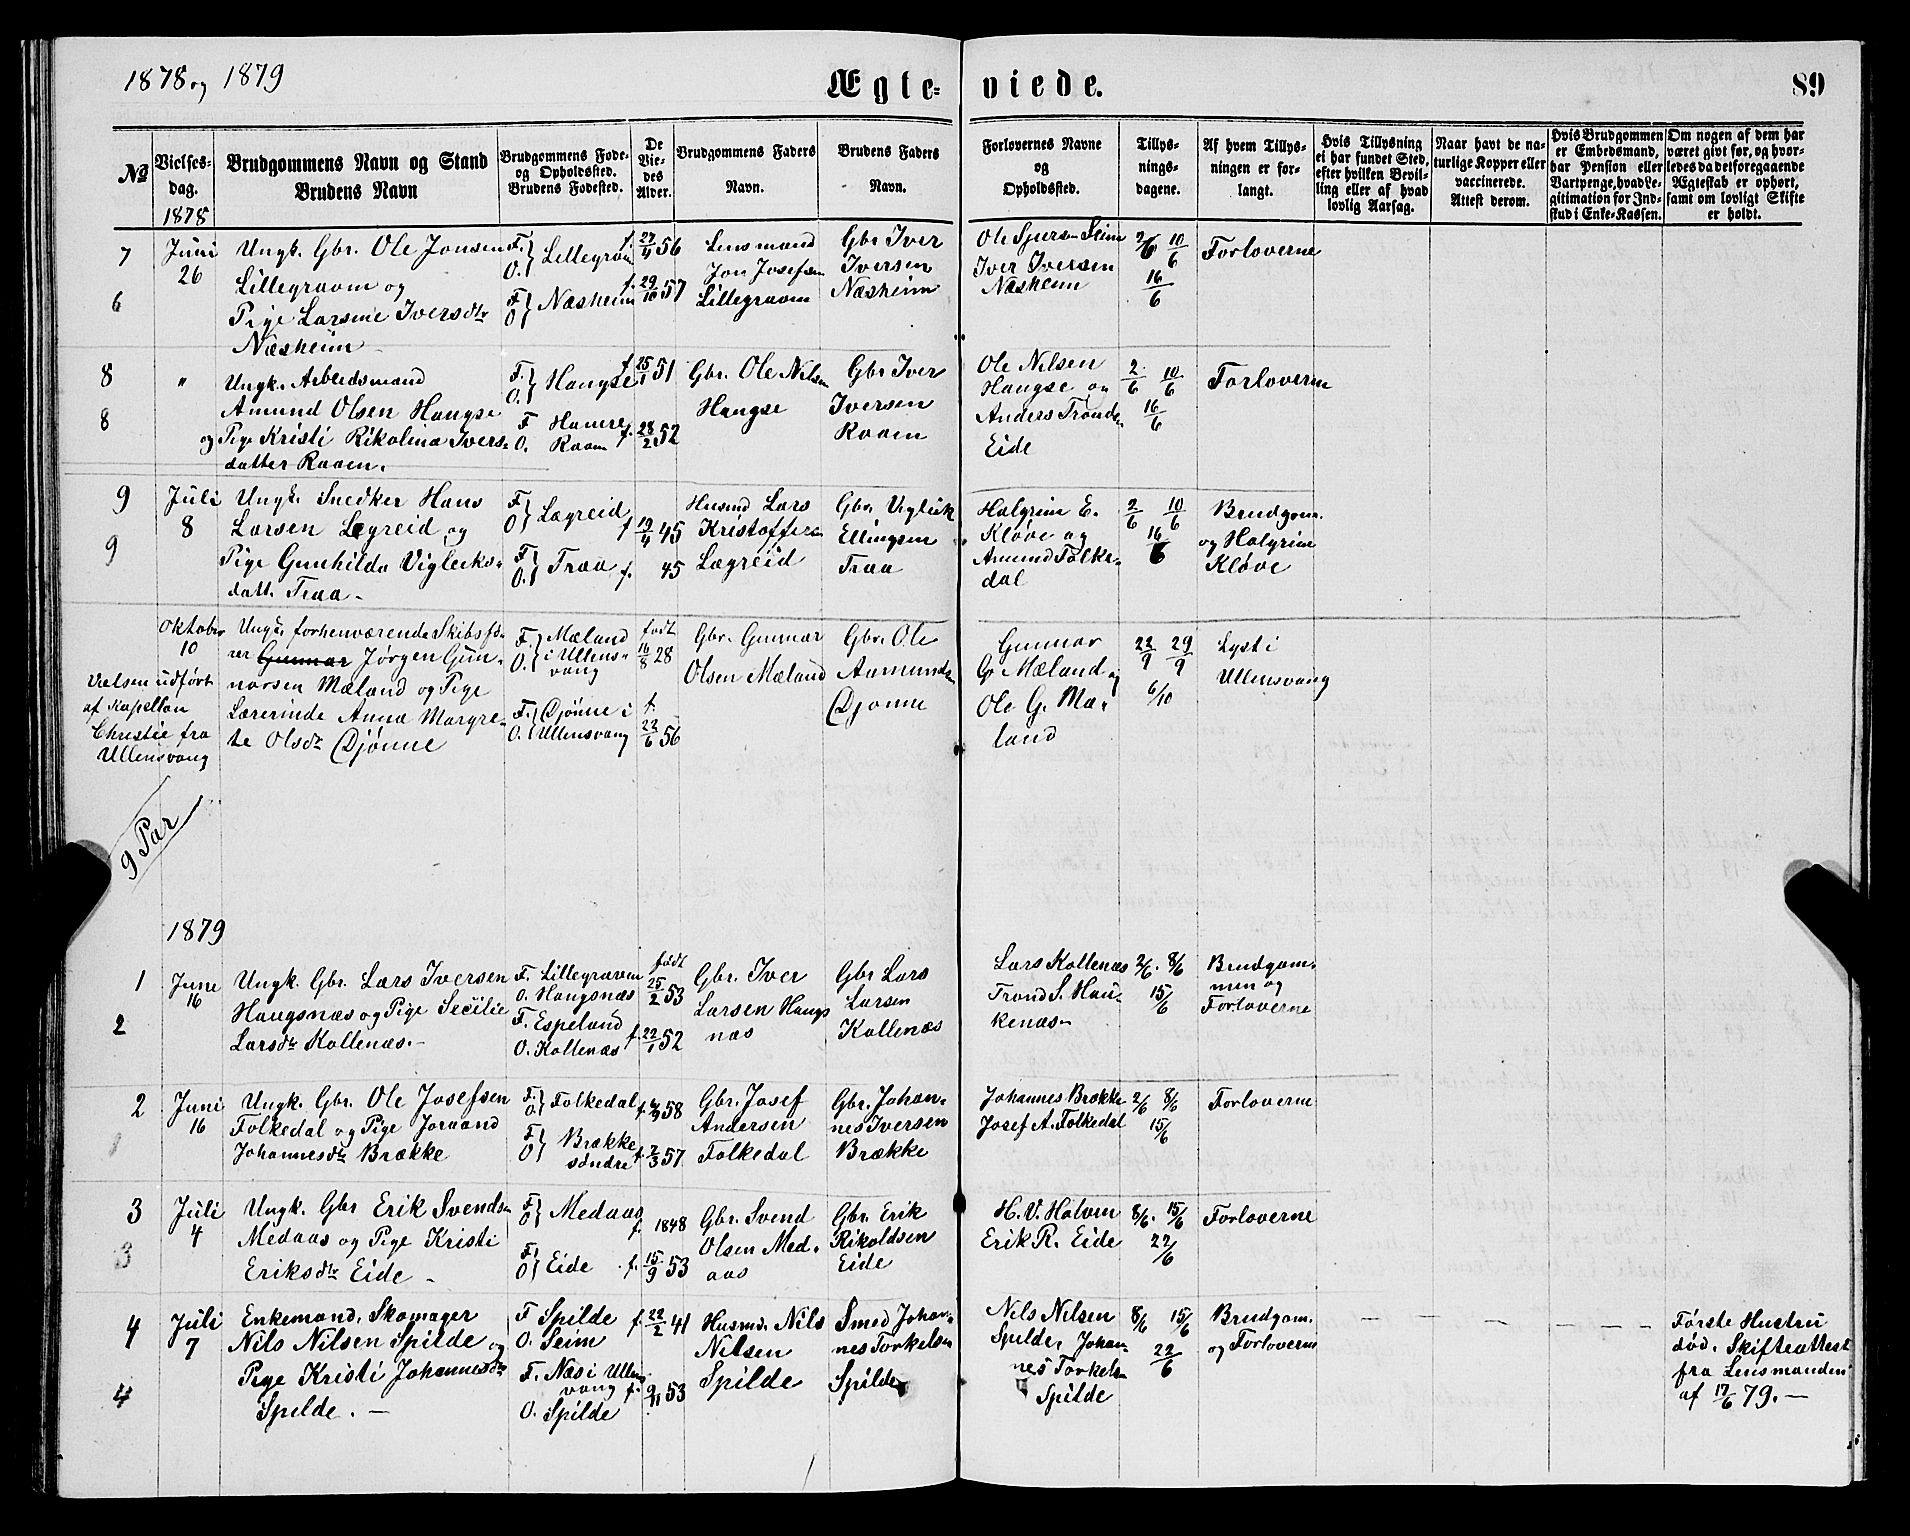 1878 og 1879
Ægte- viede. 89
№
Vielses-
dag.
1878
Brudgommens Navn og Stand
Brudens Navn
Brudgommens Føde-
og Opholdssted.
Brudens Fødested.
De
Vie-
des
Alder.
Brudgommens Faders
Navn.
Brudens Faders
Navn.
Forlovernes Navne
og
Opholdssted.
Tillys-
nings-
dagene.
Af hvem Tillys-
ningen er for-
langt.
Hvis Tillysning
ei har fundet Sted,
efter hvilken Bevil-
ling eller af hvad
lovlig Aarsag.
Naar havt de na-
turlige Kopper eller
vaccinerede.
Attest derom.
Hvis Brudgommen
er Embedsmand,
har Pension eller
Vartpenge, hvad Le-
gitimation for Ind-
skud i Enke-Kassen.
Om nogen af dem har
været givt før, og hvor-
ledes da det foregaaende
Ægteskab er ophørt,
samt om lovligt Skifte
er holdt.
7
6
Juni
26
Ungk. Gbr. Ole Jonsen
Lillegraven og
Pige Larsine Iversdtr
Næsheim
F.
O. Lillegraven
F
O Næsheim
f. 27/4 56
f. 29/10 57
Lensmand
Jon Josefsen
Lillegraven
Gbr Iver
Iversen
Næsheim
Ole Sjurs. Seim
Iver Iversen
Næsheim
2/6 10/6
16/6
Forloverne
8
8
"
Ungk. Arbeidsmand
Amund Olsen Haugse
og Pige Kristi Rikolina Ivers-
datter Raaen.
F.
O. Haugse
F Hamre
O. Raaen
f. 15/1 51
f. 28/2 52
Gbr. Ole Nilsen
Haugse
Gbr Iver
Iversen
Raaen
Ole Nilsen
Haugse og
Anders Trondsen
Eide
2/6 10/6
16/6
Forloverne
9
9
Juli
8
Ungk. Snedker Hans
Larsen Lægreid og
Pige Gunhilda Vigleiks-
datt. Traa -
F
O Lægreid
F
O. Traa
f 19/4 45
f. 45
Husmd Lars
Kristoffersen
Lægreid
Gbr. Vigleik
Ellingsen
Traa
Halgrim E.
Kløve og
Amund Folke-
dal
2/6 10/6
16/6
Brudgom.
og Halgrim
Kløve
Oktober
10
Vielsen udført
af Kapellan
Christie fra
Ullensvang
Ungk. forhenværende Skibsfø-
rer Gunnar Jørgen Gun-
narsen Mæland og Pige
Lærerinde Anna Margre-
te Olsdtr Djønne
F.
O. Mæland
i Ullens-
vang
F.
O. Djønne i
Ullensvang
født
16/8 28
f.
22/6 56
Gbr. Gunnar
Olsen Mæland
Gbr. Ole
Aamundsen
Djønne
Gunnar
G. Mæland og
Ole G. Mæ-
land
22/9 29/9
6/10
Lyst i
Ullensvang
9 Par
1879
1
2
June
16
Ungk. Gbr. Lars Iversen
Haugsnæs og Pige Secilie
Larsdtr Kollenæs. -
F. Lillegraven
O. Haugsnæs
F. Espeland
O. Kollenæs
født
25/2 53
f. 22/1 52
Gbr. Iver
Larsen Haugs
næs
Gbr Lars
Larsen
Kollenæs
Lars Kollenæs
Trond S. Hau-
kenæs
2/6. 8/6
15/6
Brudgom-
men og
Forloverne
2
1
Juni
16
Ungk. Gbr. Ole Josefsen
Folkedal og Pige Joraand
Johannesdtr Brække
F.
O Folkedal
F
O Brække
søndre
58
f. 2/3 57
Gbr. Josef
Andersen
Folkedal
Gbr. Johan-
nes Iversen
Brække
Johannes Brække
Josef A. Folkedal
2/6 8/6
15/6
Forloverne
3
3
Juli
4
Ungk. Gbr Erik Svendsen
Medaas og Pige Kristi
Eriksdtr Eide -
F
O Medaas
F
O Eide
f. 1848
f. 15/9 53
Gbr. Svend
Olsen Med-
aas
Gbr. Erik
Rikoldsen
Eide
H. V. Halven
Erik R. Eide
8/6. 15/6
22/6
Forloverne
4
4
Juli
7
Enkemand, Skomager
Nils Nilsen Spilde og
Pige Kristi Johannesdtr
Spilde. -
F Spilde
O. Seim
F. Næs i Ullens
vang
O. Spilde
f. 22/2 41
f. 9/11 53
Husmd. Nils
Nilsen
Spilde
Smed Johan-
nes Torkelsen
Spilde
Nils Nilsen
Spilde, Johan-
nes Torkels.
Spilde
8/6 15/6
22/6
Brudgom.
og Forloverne
Første Hustru
død. Skifteattest
fra Lensmanden
af 17/6 79. -